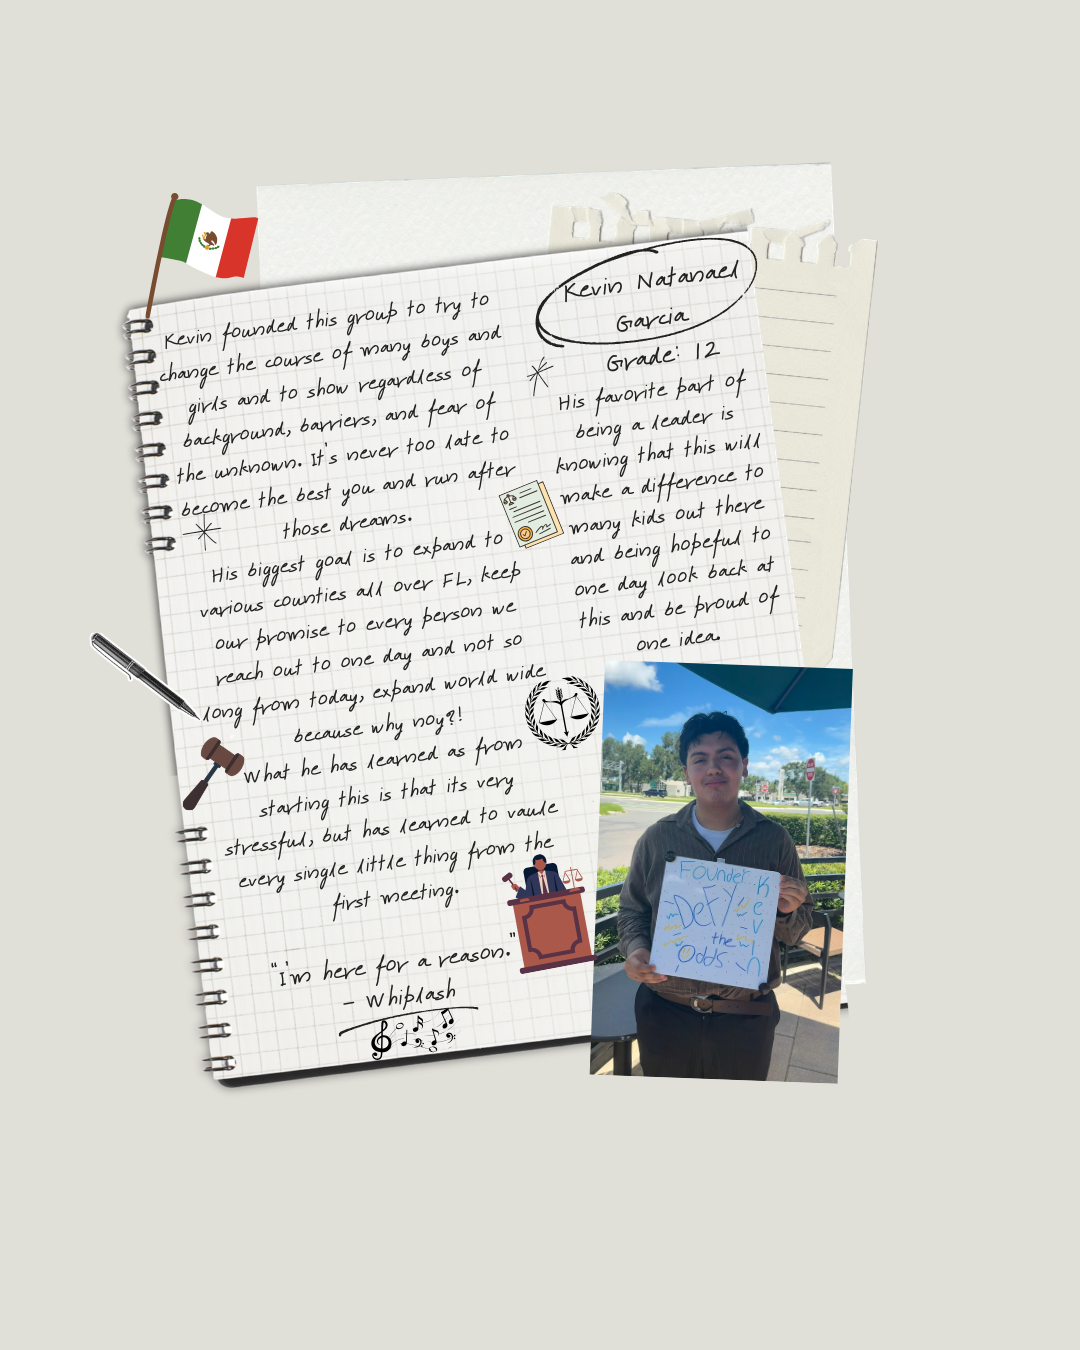 Kevin founded this group to try to
change the course of many boys and
girls and to show regardless of
background, barriers, and fear of
the unknown. It's never too late to
become the best you and run after
those dreams.
His biggest goal is to expand to
various counties all over FL, keep
our promise to every person we
reach out to one day and not so
long from today, expand world wide
because why noy?!
What he has learned as from
starting this is that its very
stressful, but has learned to vaule
every single little thing from the
first meeting.
"I'm here for a reason."
- Whiplash
Kevin Natanael
Garcia
Grade: 12
His favorite part of
being a leader is
knowing that this will
make a difference to
many kids out there
and being hopeful to
one day look back at
this and be proud of
one idea.
Founder
Kevin
DeFY
the
Odds